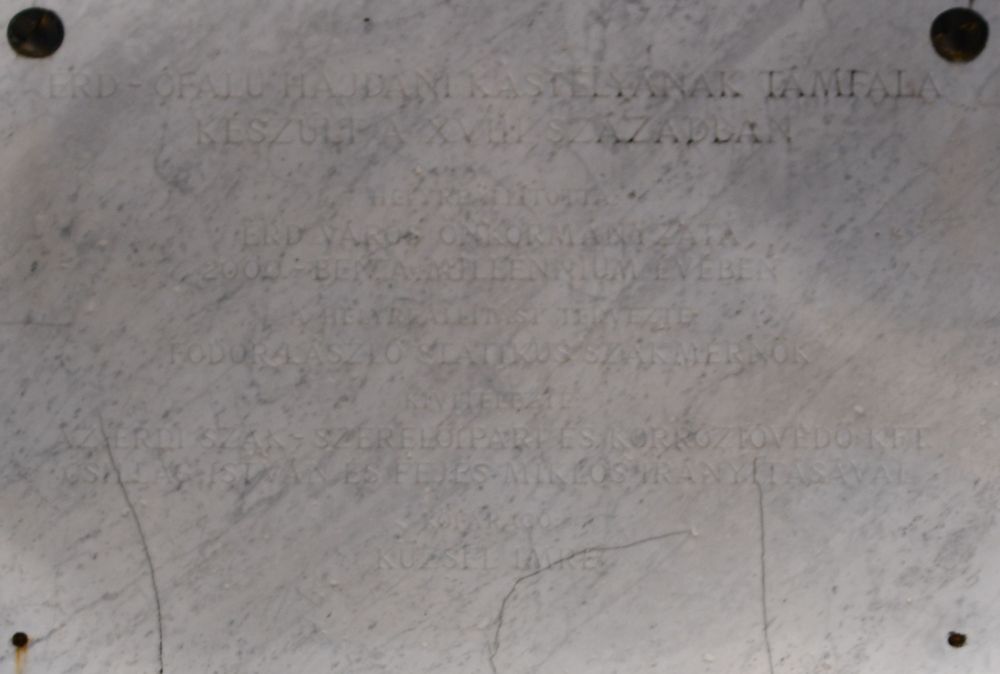 ÉRD - ÓFALU HAJDANI KASTÉLYÁNAK TÁMFALA
KÉSZÜLT A XVIII. SZÁZADBAN
HELYREÁLLÍTOTTA:
ÉRD VÁROS ÖNKORMÁNYZATA
2000.-BEN A MILLENNIUM ÉVÉBEN
A HELYREÁLLÍTÁST TERVEZTE
FODOR LÁSZLÓ STATIKUS SZAKMÉRNÖK
KIVITELEZTE
AZ ÉRDI SZAK- SZERELŐIPARI ÉS KORRÓZIÓVÉDŐ KFT.
CSILLAG ISTVÁN ÉS FEJES MIKLÓS IRÁNYÍTÁSÁVAL
IMRE